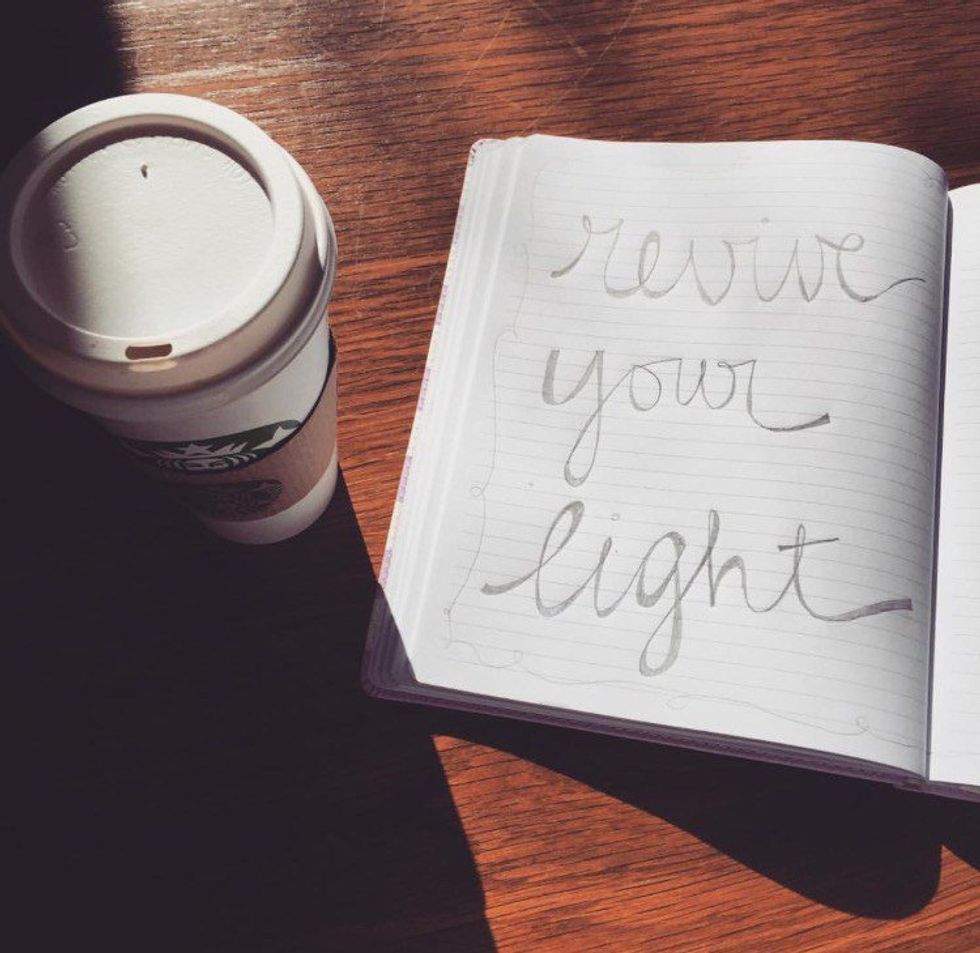 revive
your
light